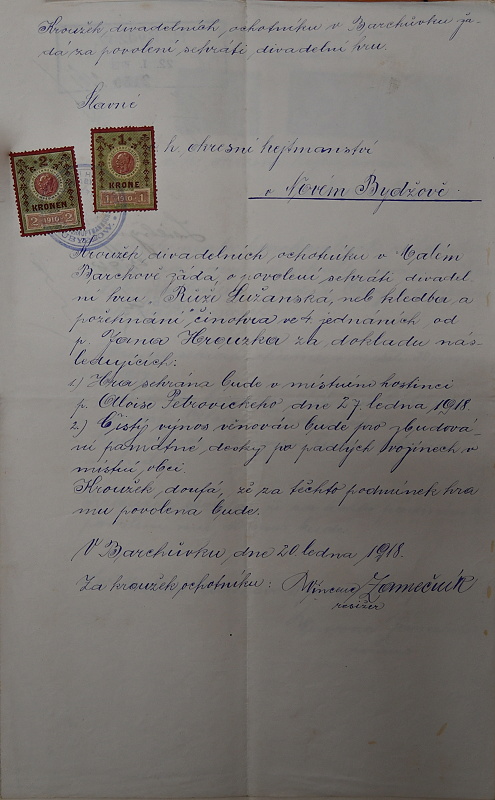 Kroužek divadelních ochotníku v Barchůvku žá-
dá za povolení sehráti divadelní hru.
Slavné
k. okresní hejtmanství
v Novém Bydžově.
2
KRONEN
2 1910 2
1
KRONE
1 1910 1
Kroužek divadelních ochotníku v Malém
Barchově žádá, o povolení sehráti divadel
ní hru "Růže Lužanská, neb kledba a
požehnání", činohra ve 4 jednáních od
p. Jana Hrouzka za dokladu nás-
ledujících:
1.) Hra sehrána bude v místním hostinci
p. Aloise Petrovického dne 27. ledna 1918.
2.) Čistý výnos věnován bude pro zbudová-
ní památné desky po padlých vojínech v
místní obci.
Kroužek doufá, že za těchto podmínek hra
mu povolena bude.
V Barchůvku, dne 20 ledna 1918.
Za kroužek ochotníku: Vincenc Zámečník
režižer